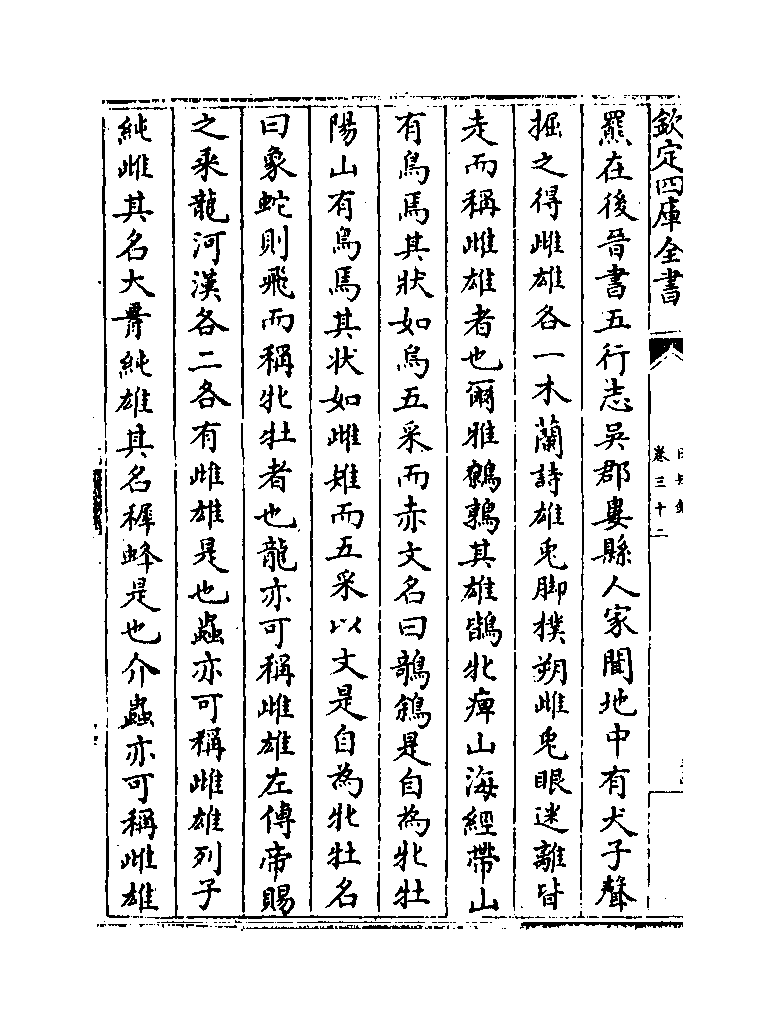 欽定四庫全書
卷三十二
羆在後晉書五行志吳郡婁縣人家聞地中有犬子聲
掘之得雌雄各一木蘭詩雄兎脚撲朔雌兎眼迷離皆
走而稱雌雄者也爾雅鷯鶉其雄鶛牝痺山海經帶山
有鳥焉其狀如烏五采而赤文名曰鵸鵌是自為牝牡
陽山有鳥焉其狀如雌雉而五采以文是自為牝牡名
曰象蛇則飛而稱牝牡者也龍亦可稱雌雄左傳帝賜
之乘龍河漢各二各有雌雄是也蟲亦可稱雌雄列子
純雌其名大純雄其名穉蜂是也介蟲亦可稱雌雄